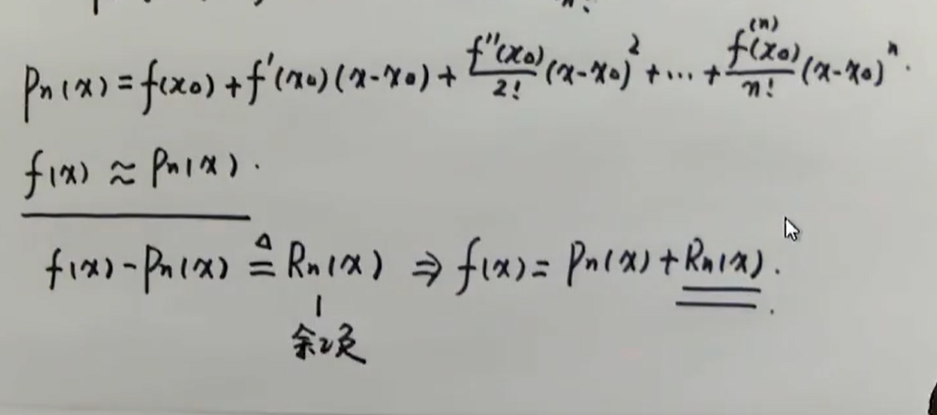 Pn(x) = f(x₀) + f'(x₀)(x-x₀) + f''(x₀)/2! (x-x₀)² + ... + f⁽ⁿ⁾(x₀)/n! (x-x₀)ⁿ.
f(x) ≈ Pn(x).
f(x) - Pn(x) ≜ Rn(x) ⇒ f(x) = Pn(x) + Rn(x).
余项